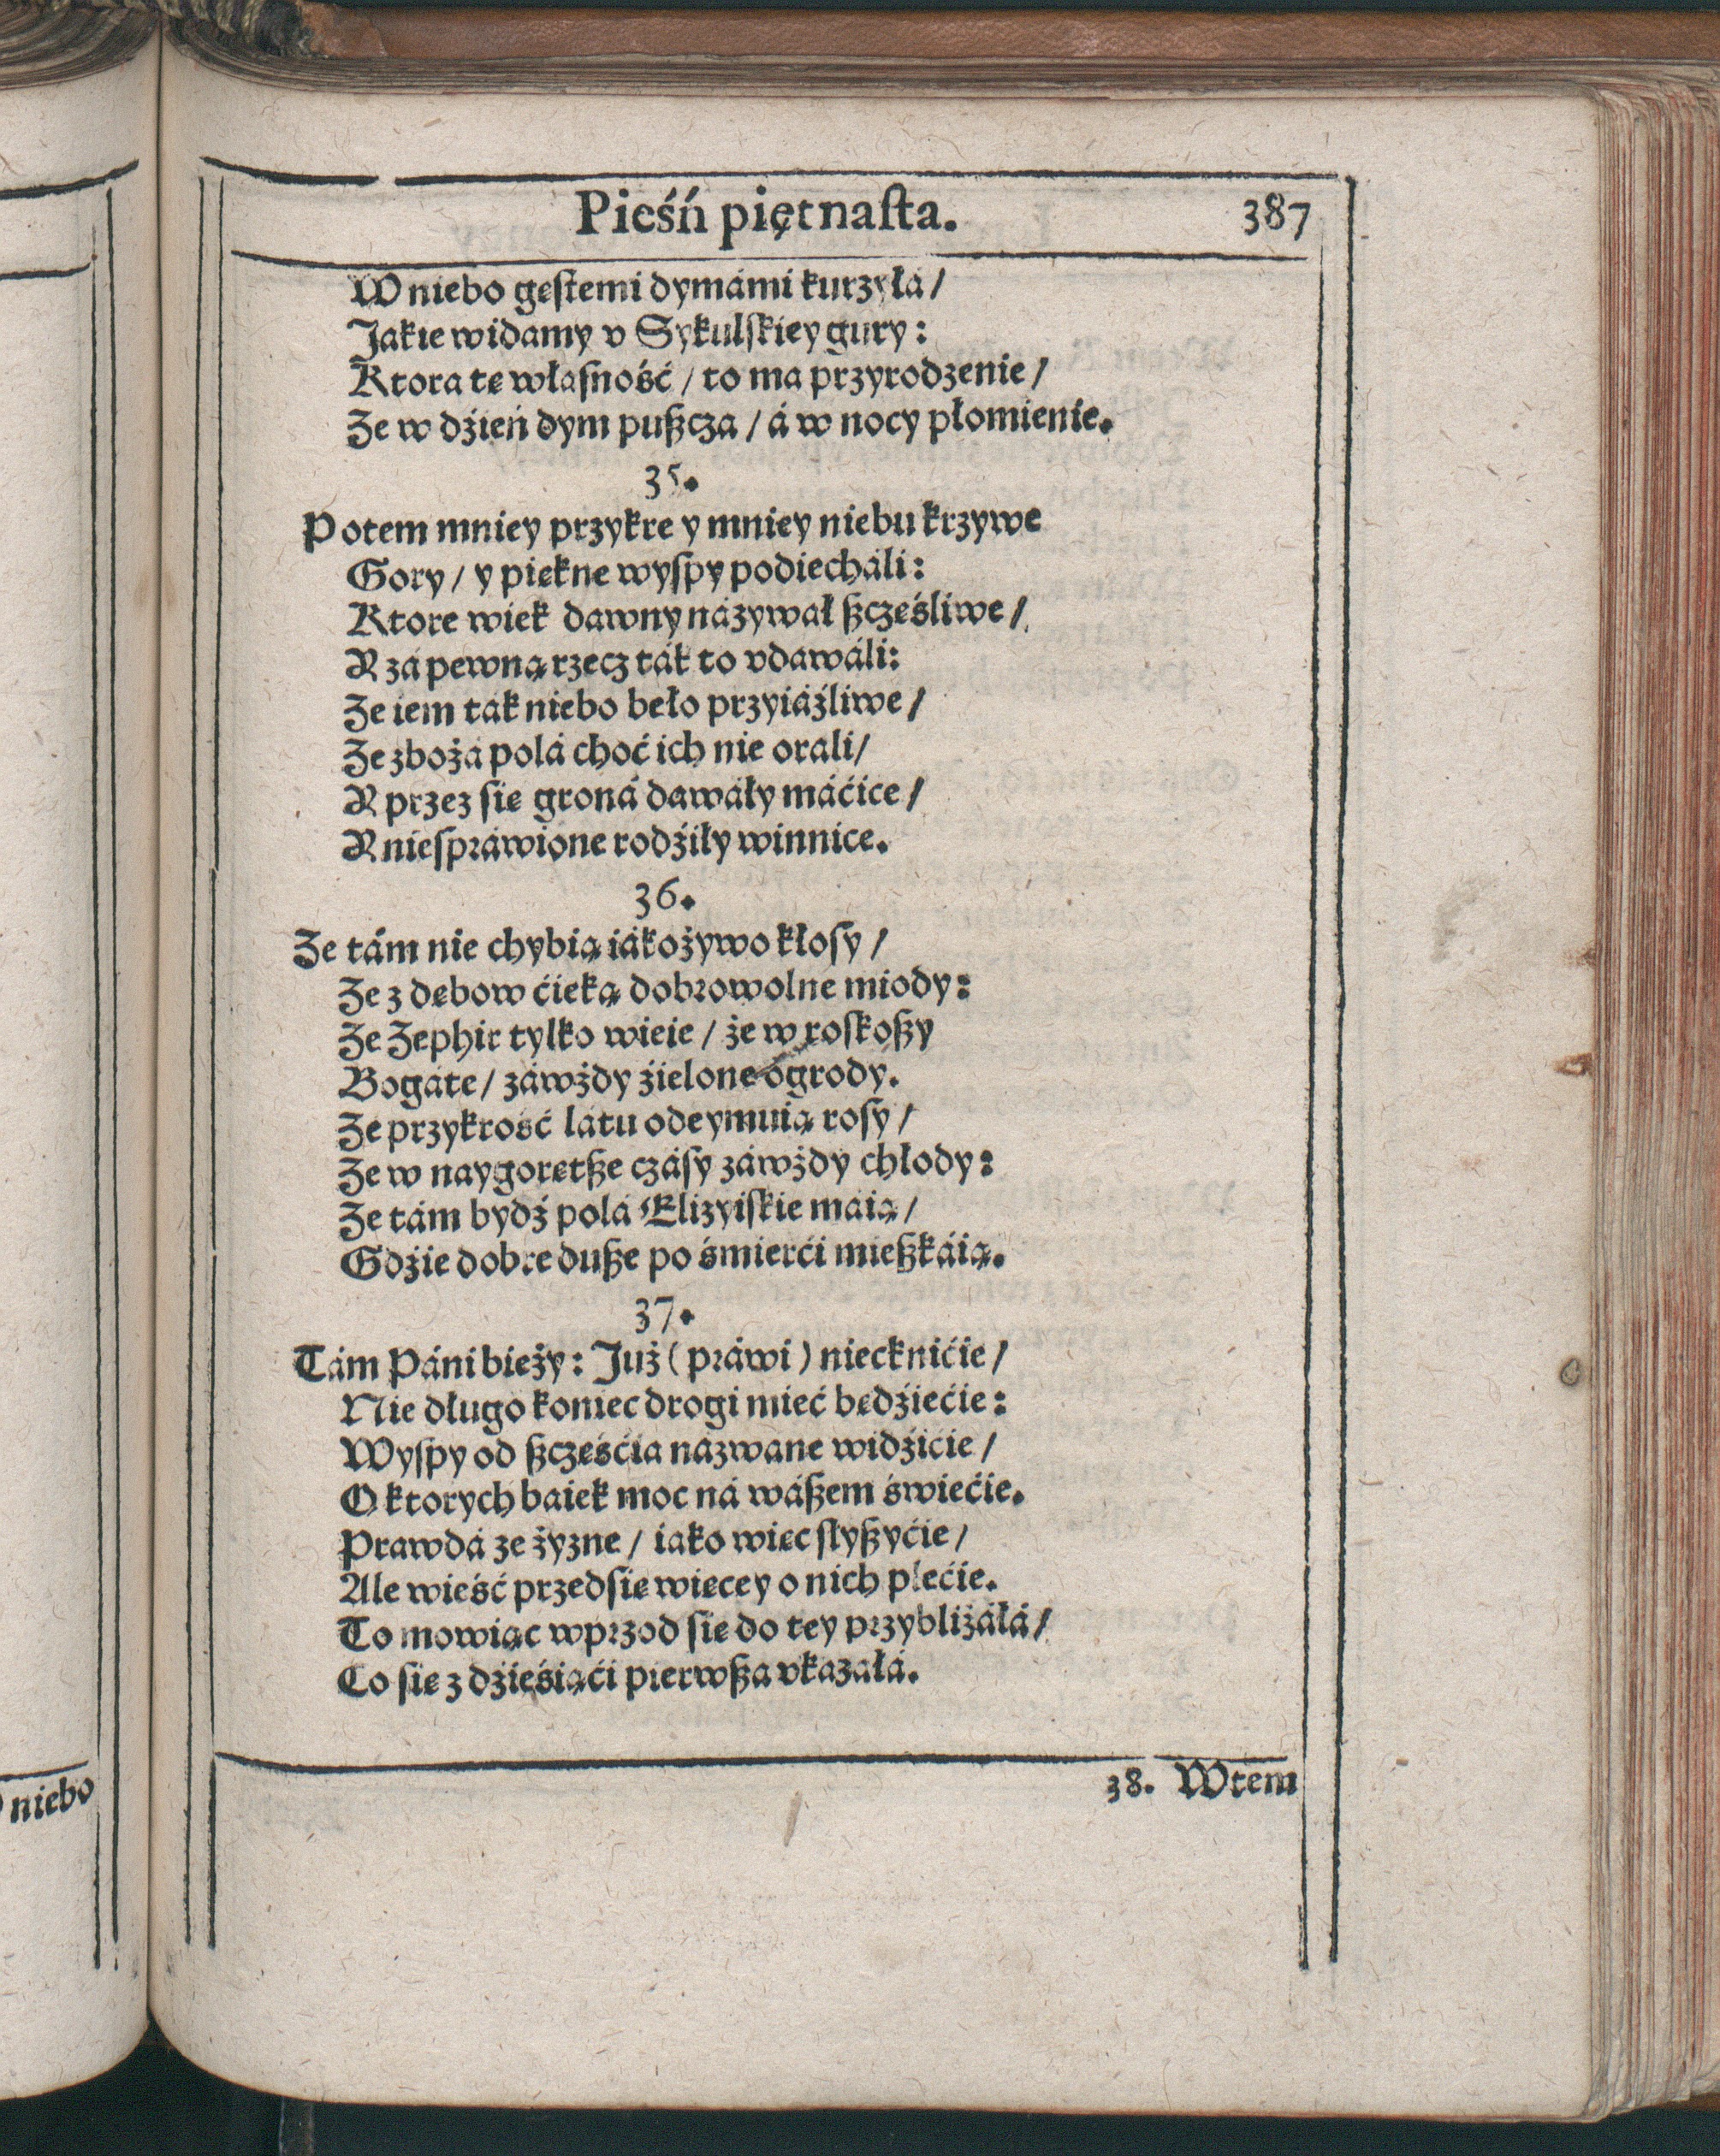 Pieśń piętnaſta.
387
W niebo gęſtemi dymámi kurzyłá/
Jakie widamy v Sykulſkiey gury:
Ktora tę włáſność / to ma przyrodzenie/
Ze w dźień dym pußcza / á w nocy płomienie.
35.
Potem mniey przykre y mniey niebu krzywe
Gory / y piękne wyſpy podiecháli:
Ktore wiek dawny názywał ßczęśliwe/
A zá pewną rzecz ták to vdawáli:
Ze iem ták niebo beło przyiáźliwe/
Ze zbożá polá choć ich nie orali/
A przez ſię groná dawáły máćice/
A nieſpráwione rodźiły winnice.
36.
Ze tám nie chybią iákożywo kłoſy/
Ze z dębow ćieką dobrowolne miody:
Ze Zephir tylko wieie / że w roſkoßy
Bogáte / záwżdy źielone ogrody.
Ze przykrość látu odeymuią roſy/
Ze w naygorętße czáſy záwżdy chłody:
Ze tám bydź polá Elizyiſkie maią/
Gdźie dobre duße po śmierći mießkáią.
37.
Tám Páni bieży: Już (práwi) niecknićie/
Nie długo koniec drogi mieć będźiećie:
Wyſpy od ßczęśćia názwane widźićie/
O ktorych baiek moc ná wáßem świećie.
Prawdá że żyzne / iáko więc ſłyßyćie/
Ale wieść przedſię więcey o nich plećie.
To mowiąc wprzod ſię do tey przybliżáłá/
Co ſię z dźieśiąći pierwßa vkazáłá.
38. Wtem
niebo